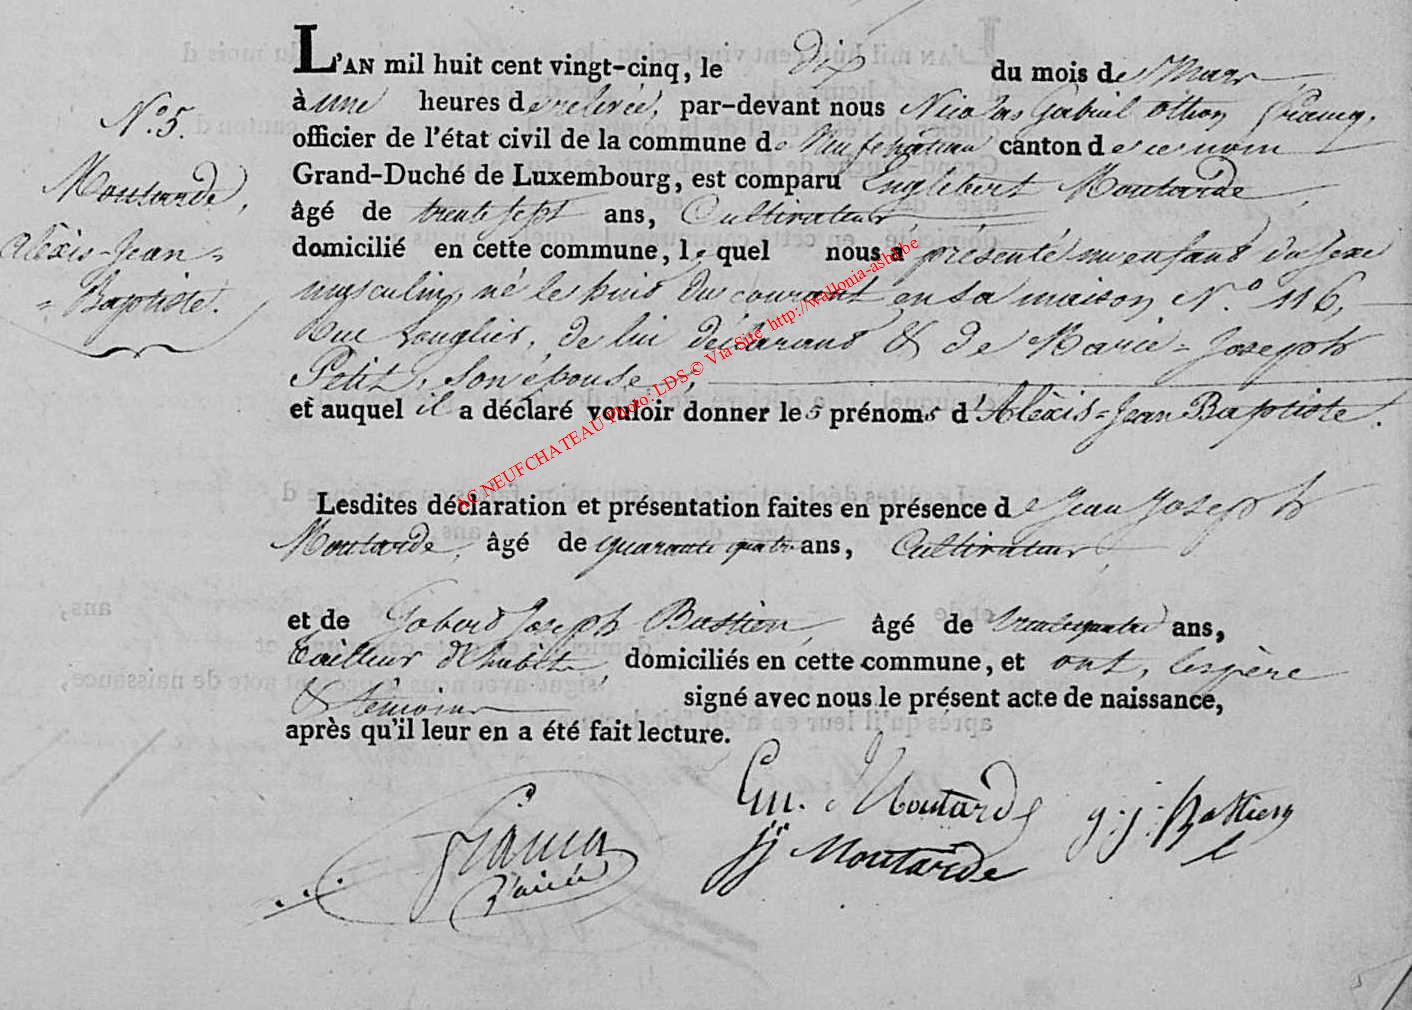 N.o 5.
Moutarde,
Alèxis-Jean-
Baptiste.
L'AN mil huit cent vingt-cinq, le dix du mois de Mars
à une heures de relevée, par-devant nous Nicolas Gabriel Othon Francq,
officier de l'état civil de la commune de Neufchâteau canton de ce nom
Grand-Duché de Luxembourg, est comparu Englebert Moutarde,
âgé de trente sept ans, Cultivateur
domicilié en cette commune, lequel nous a présenté un enfant du sexe
masculin, né le huit du courant en sa maison N.o 116,
Rue Longlier, de lui déclarant & de Marie-Joseph
Petit, son épouse,
et auquel il a déclaré vouloir donner les prénoms d'Alèxis-Jean Baptiste.
Lesdites déclaration et présentation faites en présence de Jean Joseph
Moutarde, âgé de quarante quatre ans, Cultivateur,
et de Gobert Joseph Bastien, âgé de trente quatre ans,
tailleur d'habits domiciliés en cette commune, et ont, les père
& témoins signé avec nous le présent acte de naissance,
après qu'il leur en a été fait lecture.
En. Moutarde
g: j: Bastien
jj Moutarde
Francq
AC NEUFCHATEAU Photo: LDS © Via Site http://wallonia-asbl.be